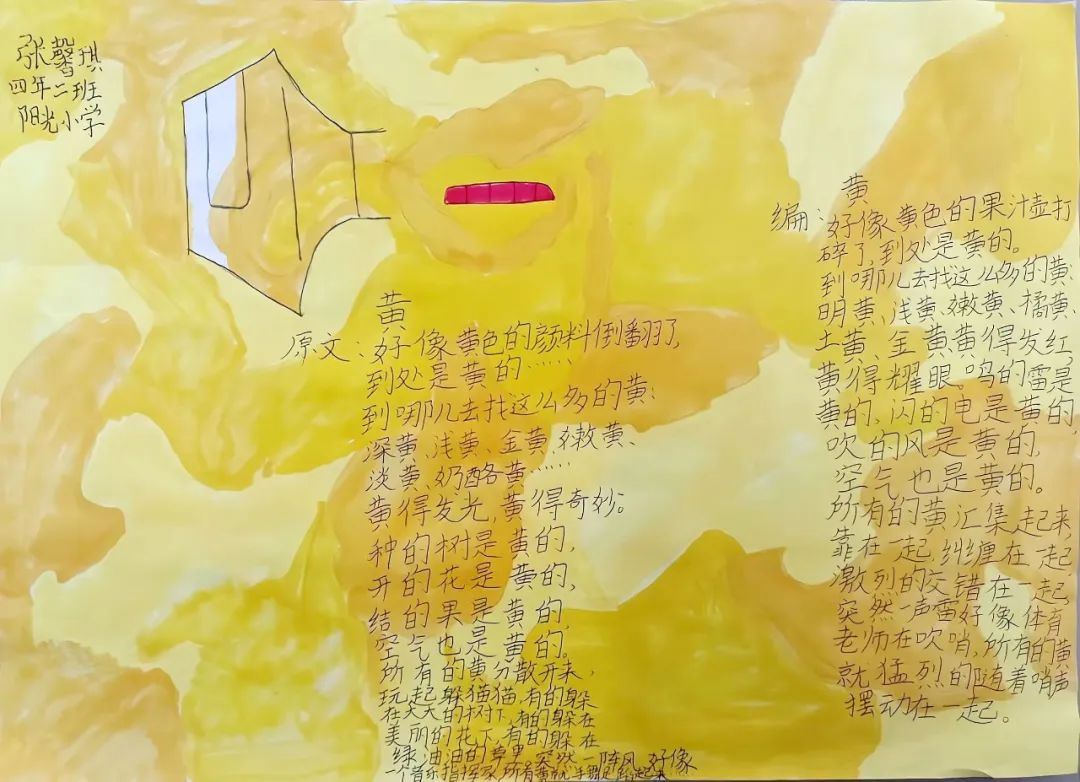 张馨琪
四年二班
阳光小学
黄
原文：好像黄色的颜料倒翻了，
到处是黄的……
到哪儿去找这么多的黄：
深黄、浅黄、金黄、嫩黄、
淡黄、奶酪黄……
黄得发光，黄得奇妙。
种的树是黄的，
开的花是黄的，
结的果是黄的，
空气也是黄的。
所有的黄分散开来，
玩起躲猫猫，有的躲
在大大的树下，有的躲在
美丽的花下，有的躲在
绿油油的草里，突然一阵风，好像
一个音乐指挥家，所有黄就
黄
编：好像黄色的果汁壶打
碎了，到处是黄的。
到哪儿去找这么多的黄：
明黄、浅黄、嫩黄、橘黄、
土黄、金黄黄得发红，
黄得耀眼。鸣的雷是
黄的，闪的电是黄的，
吹的风是黄的，
空气也是黄的。
所有的黄汇集起来，
靠在一起，纠缠在一起
激烈的交错在一起
突然一声雷好像体育
老师在吹哨，所有的黄
就猛烈的随着哨声
摆动在一起。